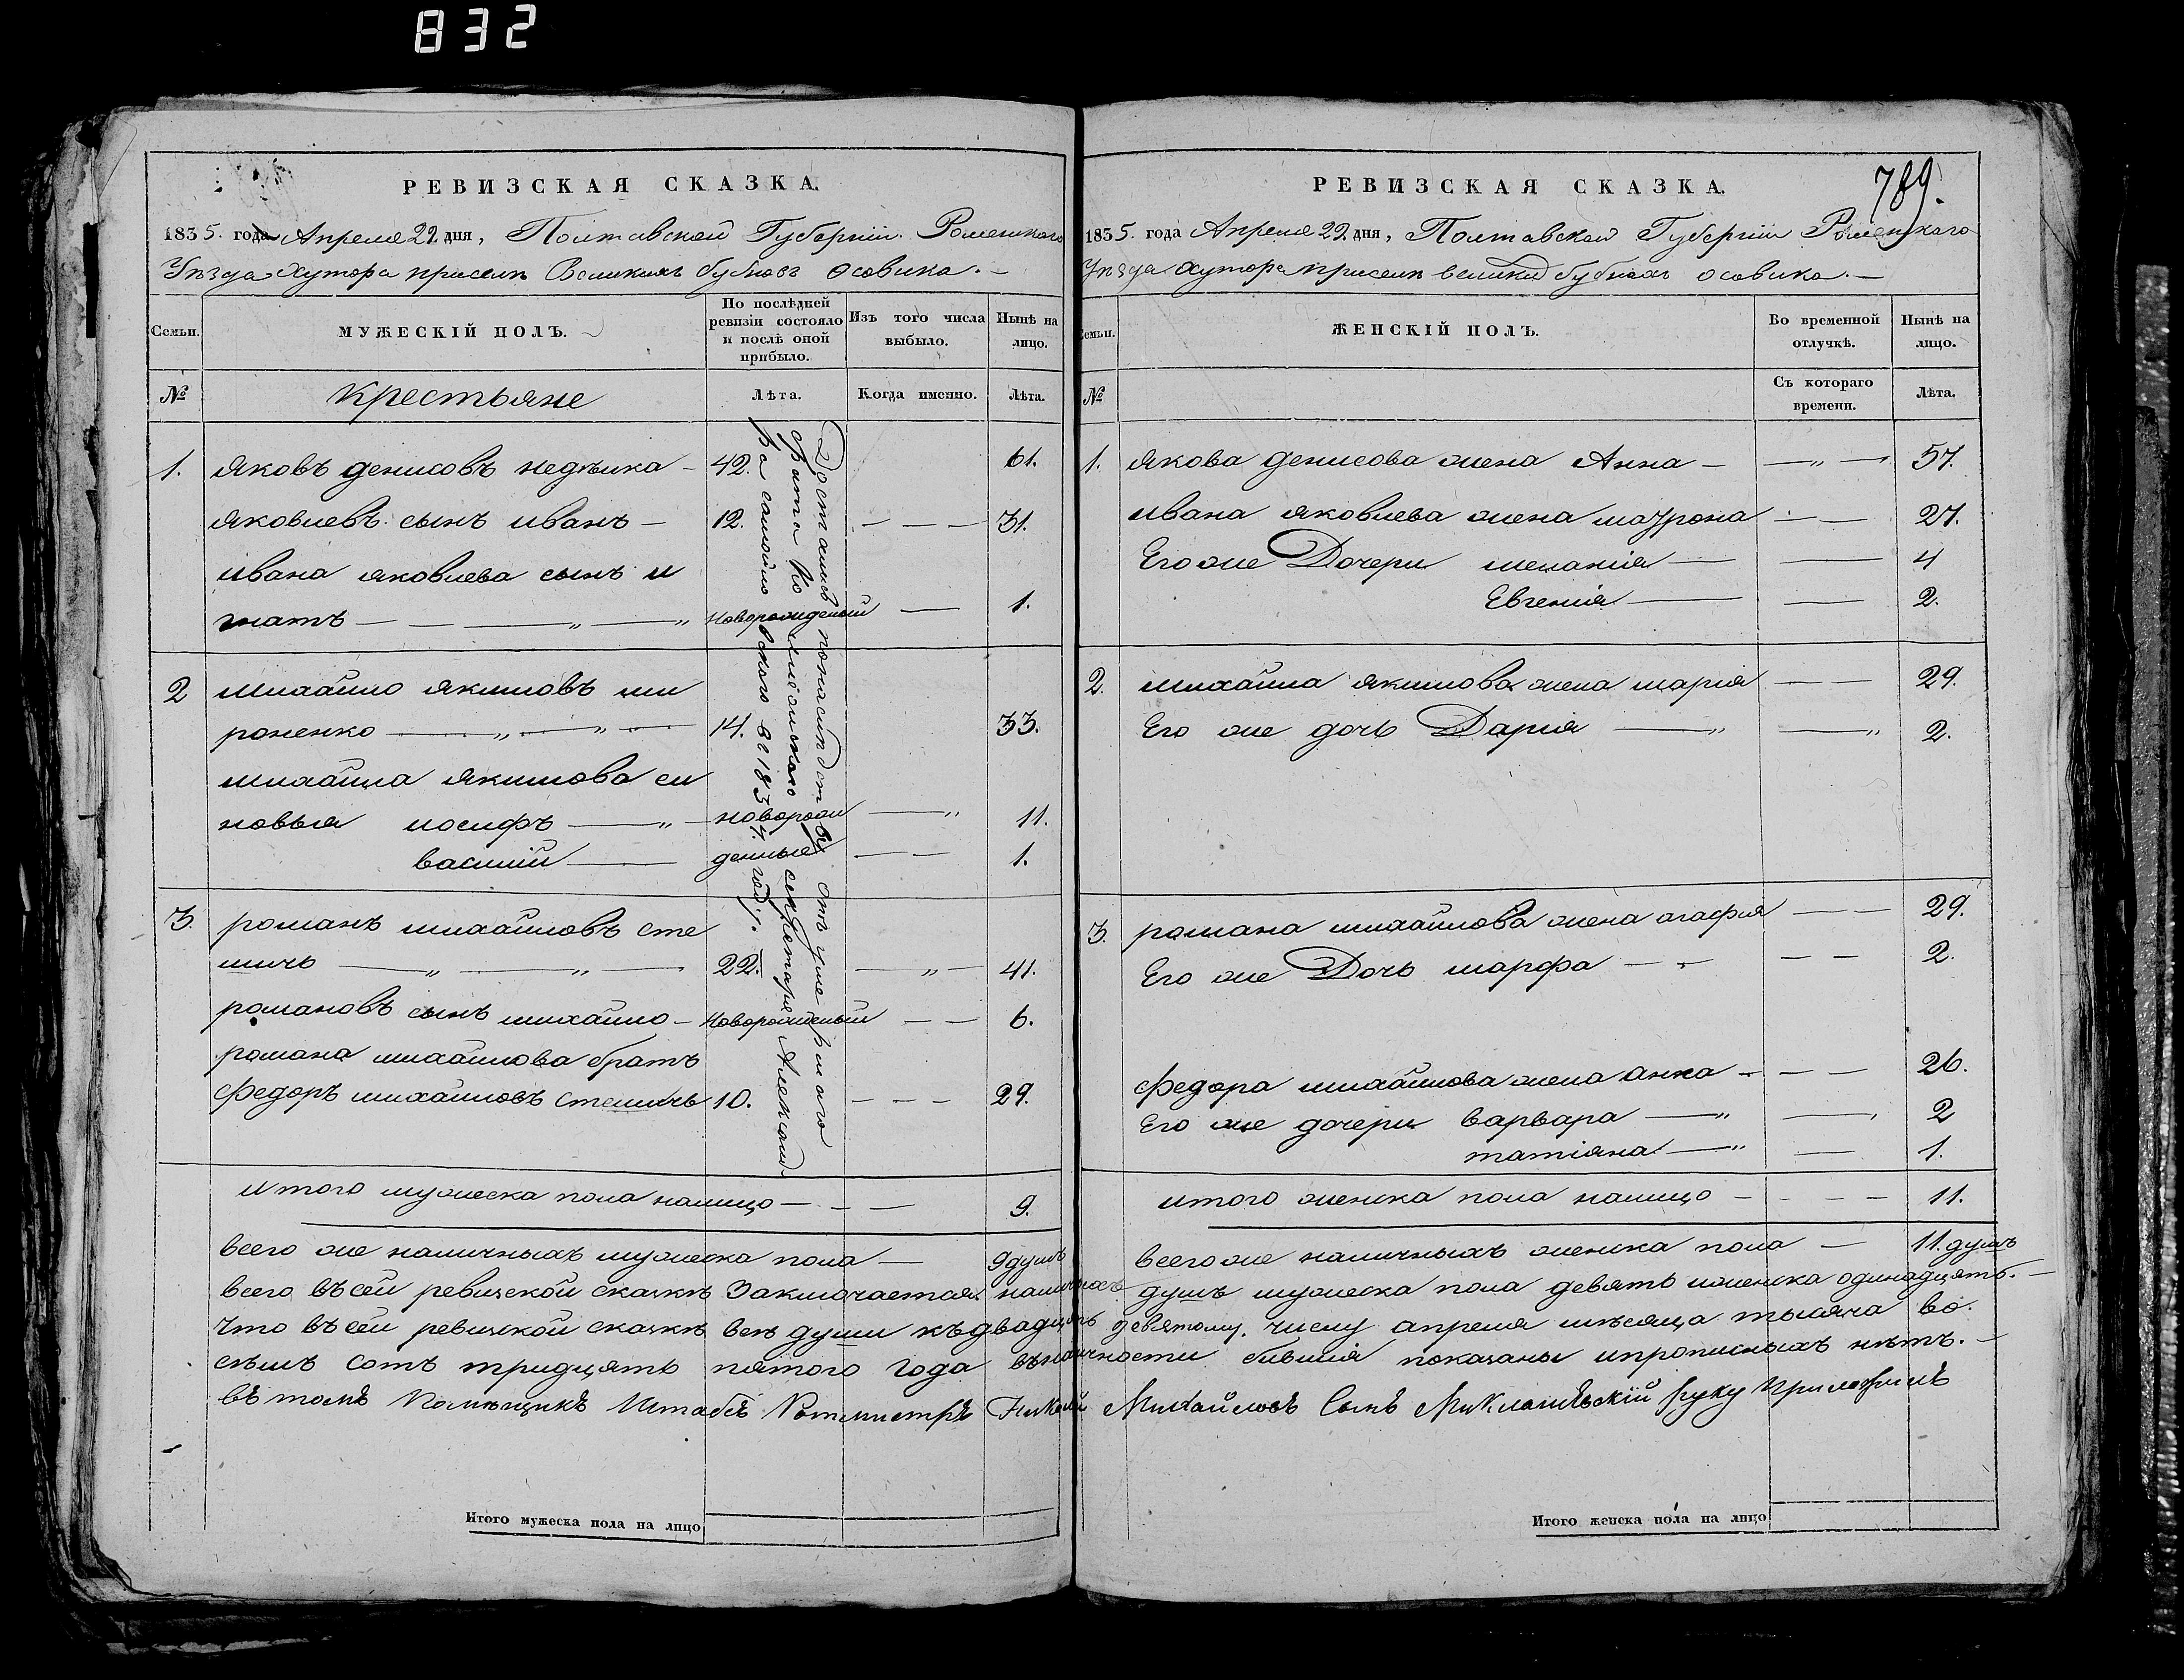 832
РЕВИЗСКАЯ СКАЗКА.
1835. года Апреля 29. дня, Полтавской Губернiи. Роменского
Уѣзда Хутора присели Великихъ бубновъ осовика.
Семьи.
МУЖЕСКIЙ ПОЛЪ.
По послѣдней ревизiи состояло и послѣ оной прибыло.
Изъ того числа выбыло.
Нынѣ на лицо.
№
крестьяне
Лѣта.
Когда именно.
Лѣта.
1. яковъ денисовъ недѣлка 42. 61.
яковлевъ сынъ иванъ 12. 31.
ивана яковлева сынъ и
гнатъ новорожденый 1.
2 михайло якимовъ ми
роненко 14. 33.
михайла якимова си
новья иосифъ новорож 11.
василiй денные 1.
3. романъ михайловъ сте
шичь 22. 41.
романовъ сынъ михайло новорожденый 6.
романа михайлова братъ
федоръ михайловъ стешичь 10. 29.
Достались от умершаго
секретаря Александ
ра самойло въ 1834. году.
итого мужеска пола налицо 9.
всего же наличныхъ мужеска пола 9 душъ
789.
РЕВИЗСКАЯ СКАЗКА.
1835. года Апреля 29. дня, Полтавской Губернiи Роменскаго
Уѣзда Хутора присели великих бубнахъ осовика.
Семьи.
ЖЕНСКIЙ ПОЛЪ.
Во временной отлучкѣ.
Нынѣ на лицо.
№
Съ котораго времени.
Лѣта.
1. якова денисова жена Анна 57.
ивана яковлева жена маурона 27.
Его же Дочери меланiя 4
Евгенiя 2.
2. михайла якимова жена марiя 29.
Его же дочь Дарiя 2.
3. романа михайлова жена агафiя 29.
Его же Дочь марфа 2.
федора михайлова жена анна 26.
Его же дочери варвара 2
татiяна 1.
итого женска пола налицо 11.
всего же наличныхъ женска пола 11. душъ
всего въ сей ревизской сказкѣ заключается наличныхъ душъ мужеска пола девять иженска одинадцять.
Что въ сей ревизской сказкѣ всѣ души къ двадцять девятому числу апреля мѣсяца тысяча во.
сѣмъ сотъ тридцять пятого года въ наличности бывшiя показаны ипрописныхъ нѣтъ.
въ томъ Помѣщикъ Штабсъ Ротмистръ Николай Михайловъ Сынъ Миклашевскiй руку приложилъ
Итого мужеска пола на лицо
Итого женска пола на лицо